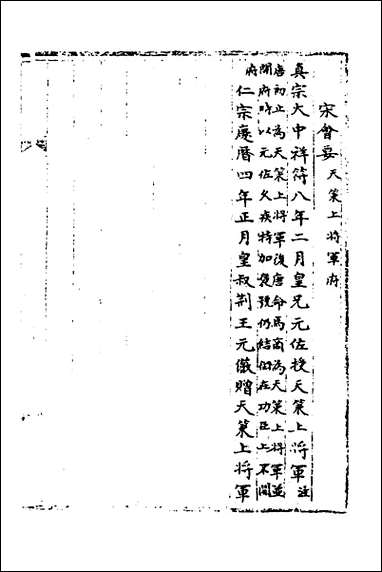 宋會要天策上將軍府
真宗大中祥符八年二月皇兄元佐授天策上將軍注
唐初止為天策上將軍後唐命馬商為天策上將軍並
開府時以元佐久疾特加褒號仍結銜在功臣上不開
府
仁宗慶曆四年正月皇叔荆王元儼贈天策上將軍